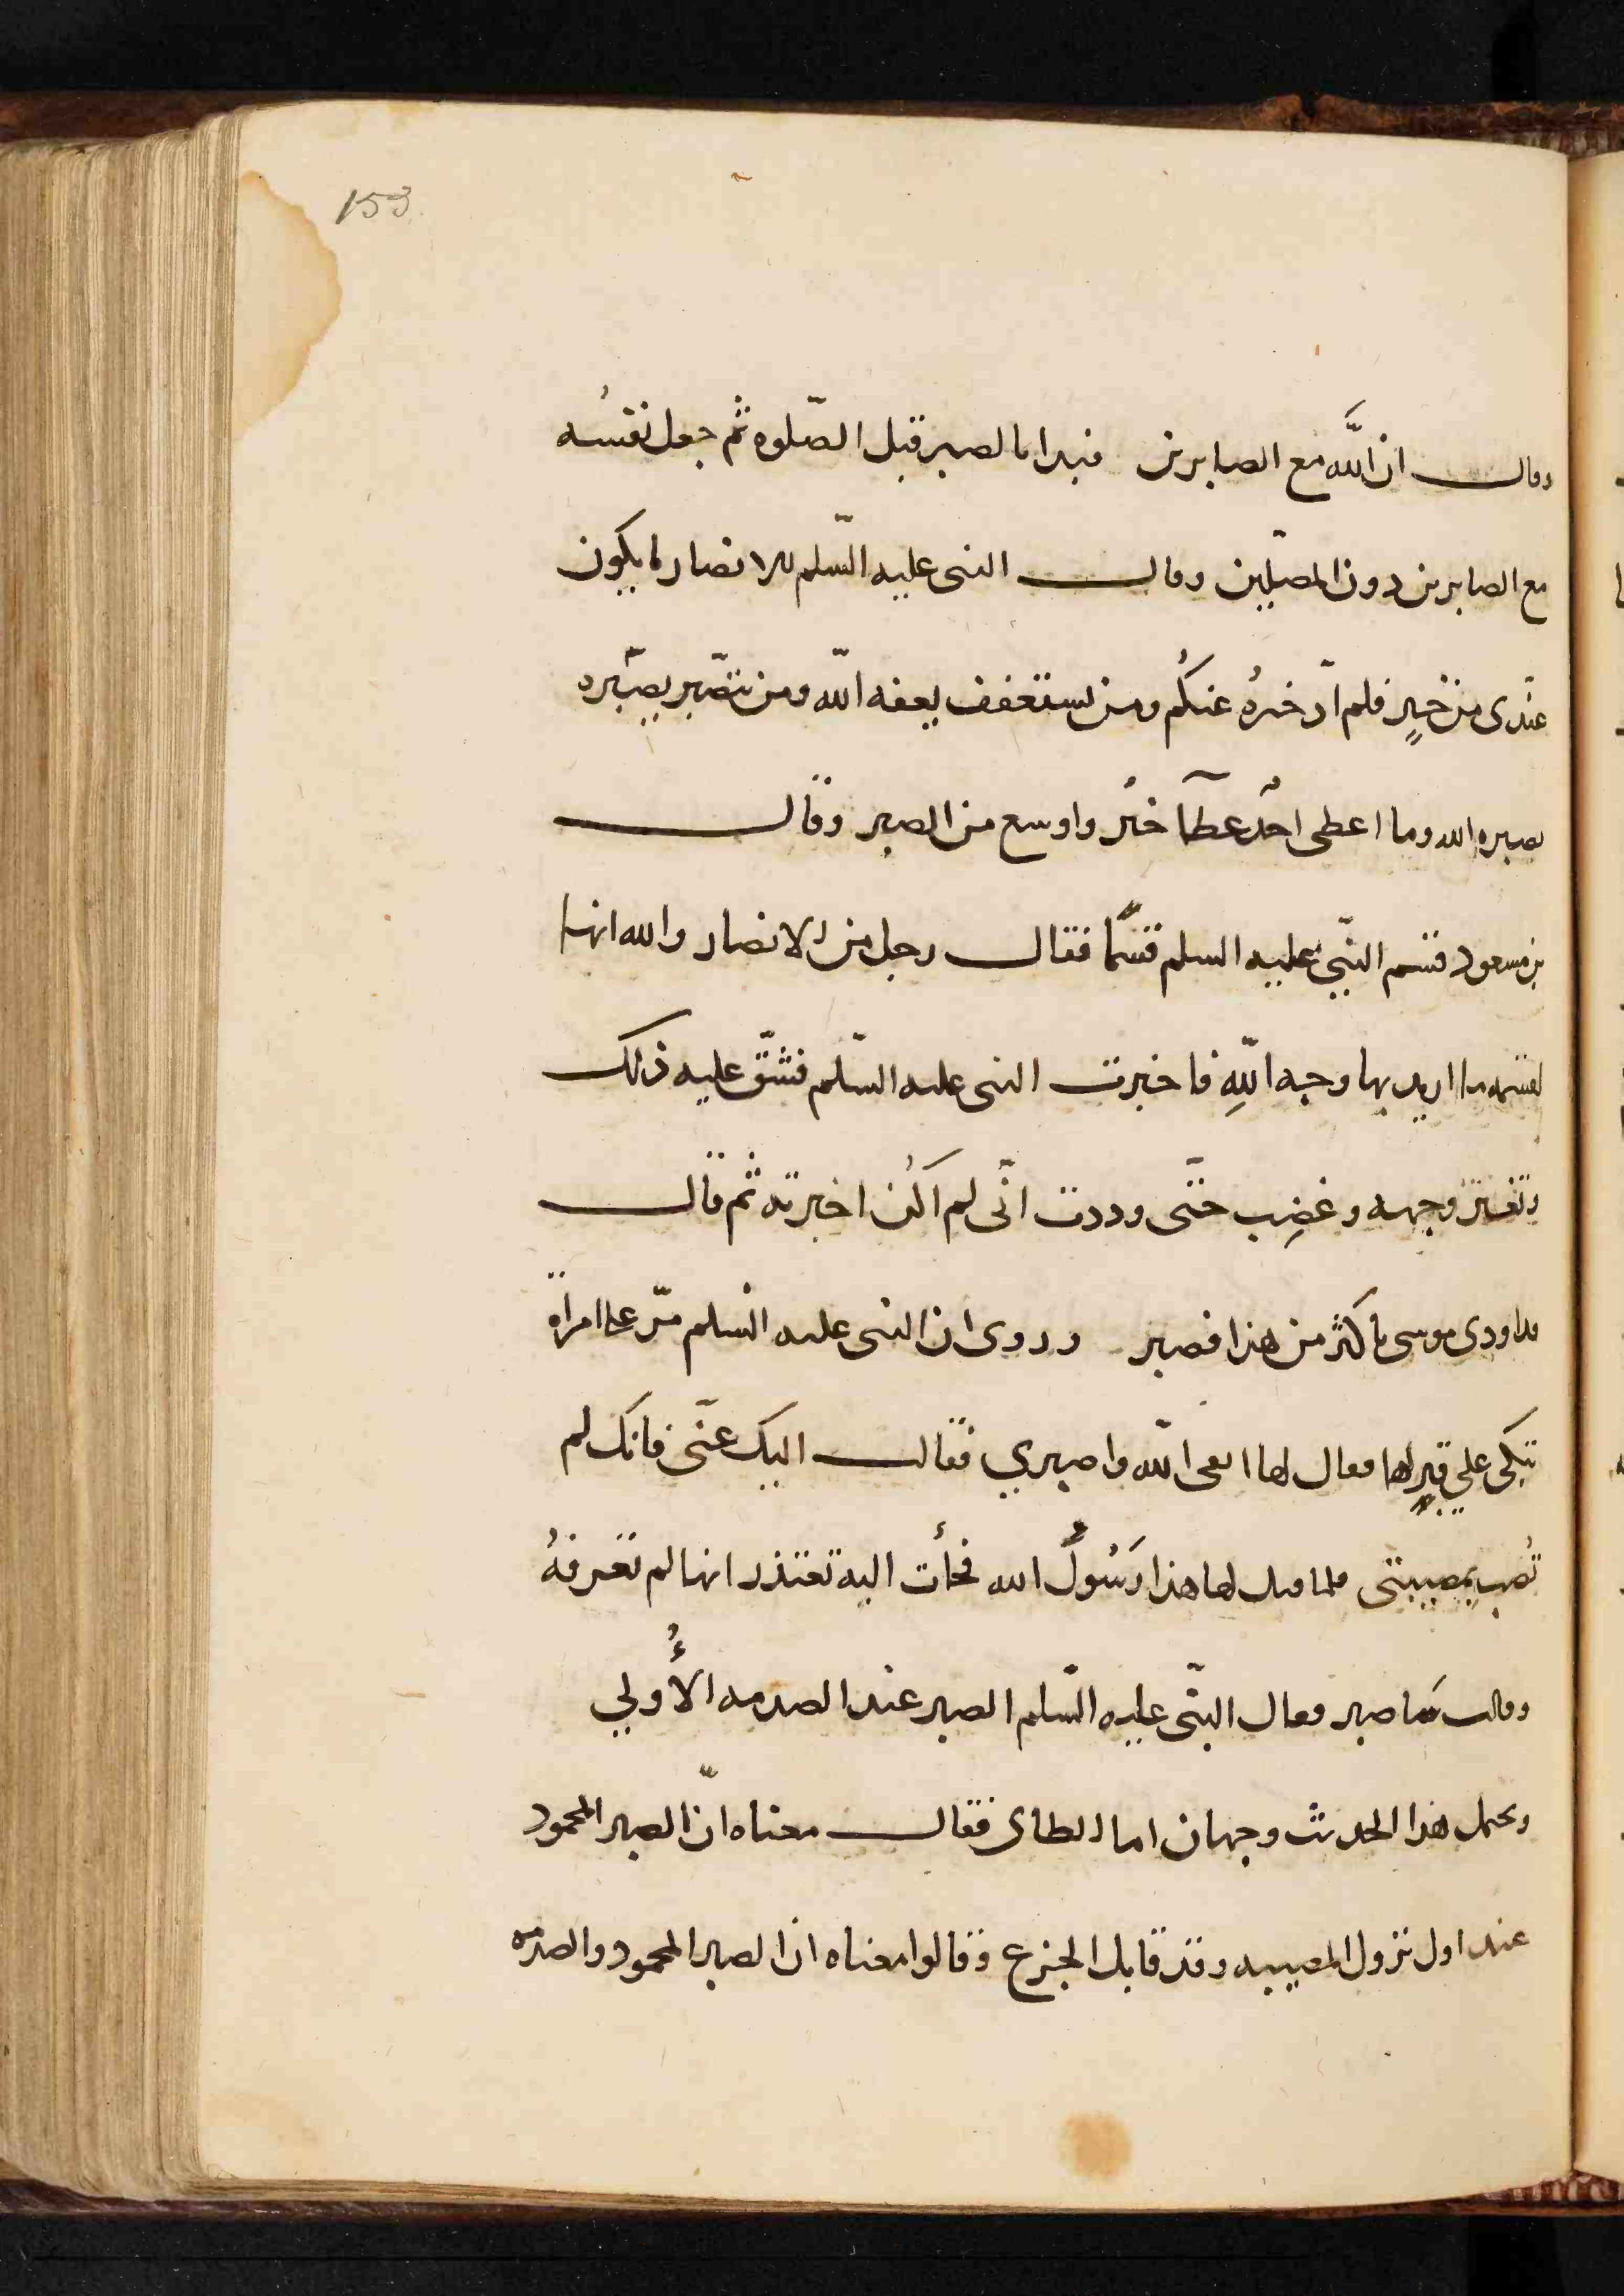 153
وقال ان اللّه مع الصابرين فبدا بالصبر قبل الصّلوه ثم جعل نفسُه
مع الصابرين دون المصلّين وقال النبى عليه السّلم للانصار ما يكون
عندى من خيرٍ فلم ادّخرهُ عنكُم ومن يستعفف يعفه اللّه ومن يتصّبر يصبّره
يصبره الله وما اعطى احدٌ عطآ خير واوسع من الصبر وقال
بن مسعود قسم النبّى عليه السلم قسمًا فقال رجل من الانصار والله انها
لقسمه ما اريد بها وجه اللّهِ فاخبرت النبى عليه السّلم فشقّ عليه ذلك
وتغيّر وجهه وغضِب حتّى وددت انّى لم اكُن اخبرته ثم قال
قد اودى موسى باكثر من هذا فصبر وروى ان النبى عليه السّلم مرّ على امراة
تبكى على قبرٍ لها فقال لها اتقى اللّه واصبري فقالت اليك عنّى فانك لم
تُصب بمصيبتى فلما قيل لها هذا رَسُولُ الله فجأت اليه تعتذر انها لم تعرفهُ
وقالت ساصبر فقال النبّى عليه السّلم الصبر عند الصدمه الأُولي
ويحمل هذا الحديث وجهان اما الطاى فقال معناه انّ الصبر المحمود
عند اول نزول المصيبه وقد قابل الجزع وقالوا معناه ان الصبر المحمود والصدمه